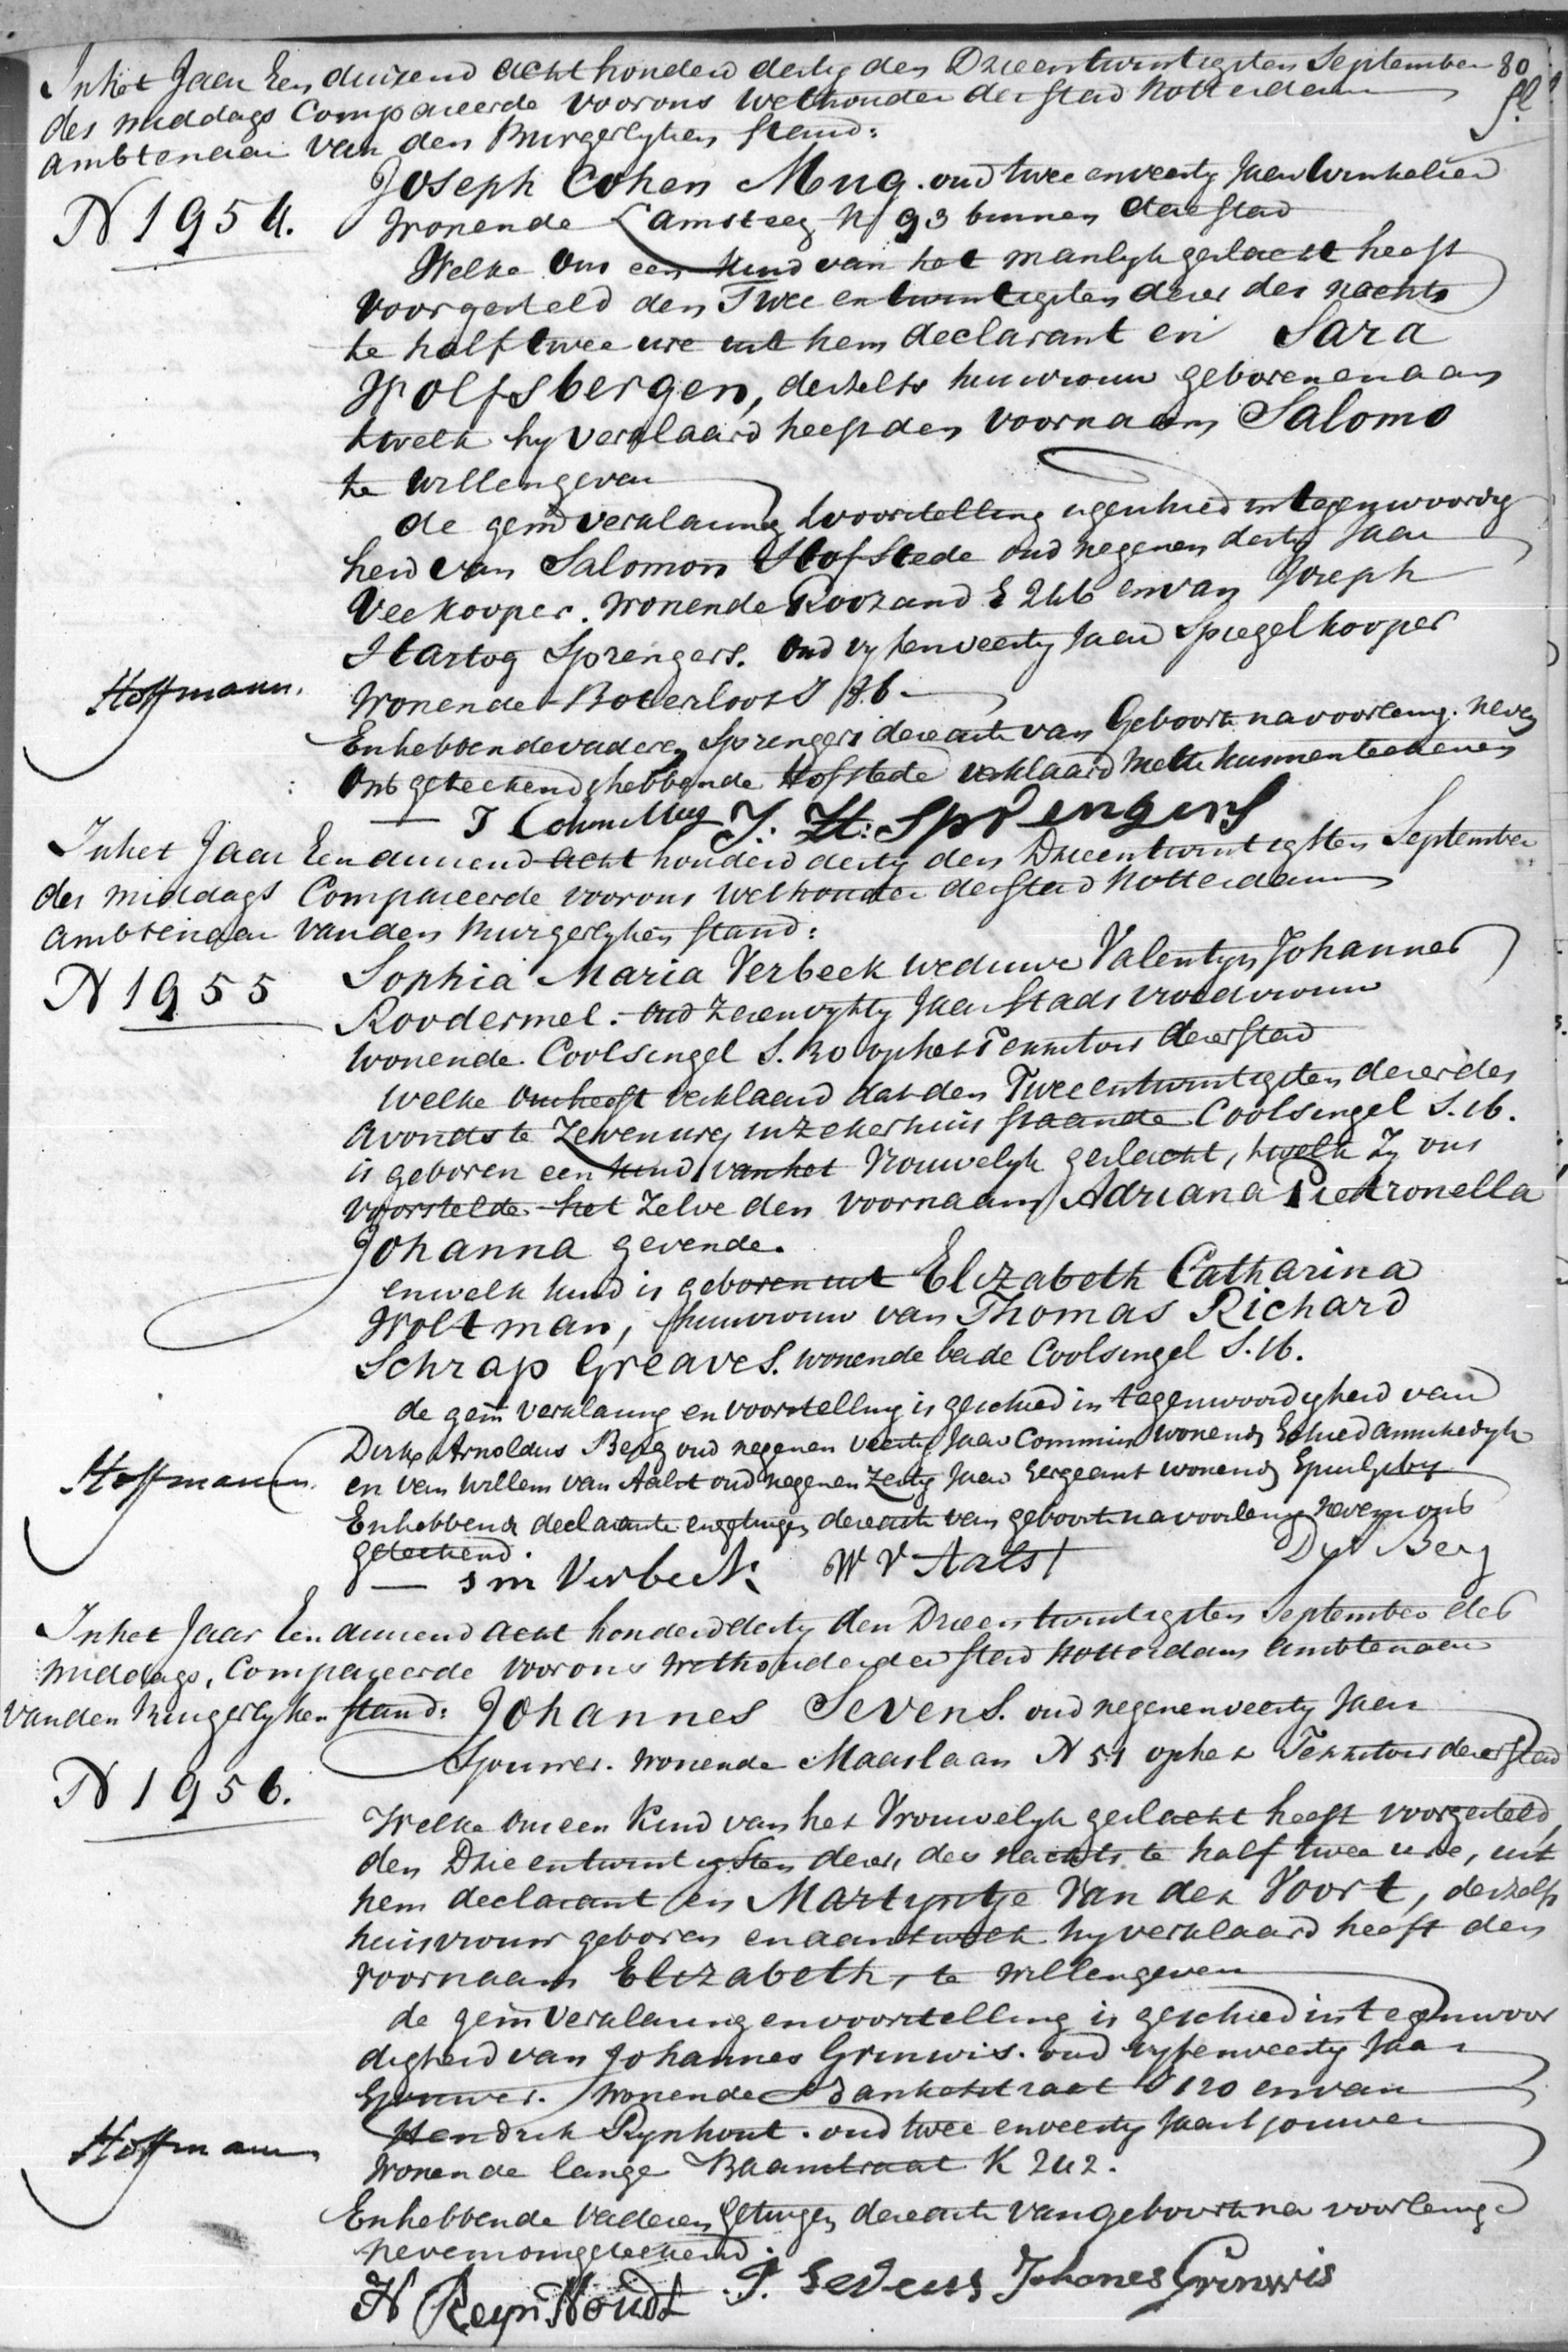 In het Jaar Een duizend acht honderd dertig den Drieentwintigsten September 80
des middags Compareerde voor ons Wethouder der stad Rotterdam
ambtenaar van den Burgerlyken stand:
Joseph Cohen Mug. oud twee en veertig Jaar Winkelier
N 1954.
Wonende Lamsteeg N 93 binnen deze stad
Welke ons een kind van het manlyk geslacht heeft
voorgesteld den Twee entwintigsten dezer des nachts
te half twee ure uit hem declarant en Sara
Wolfsbergen, deszelfs huisvrouw geboren en aan
twelk hy verklaard heeft den voornaam Salomo
te willen geven
de gemd verklaaring & voorstelling is geschied in tegenwoordig
heid van Salomon Hofstede oud negenendertig Jaar
Veekooper. Wonende Roozand E 246 en van Joseph
Hartog Sprengers. oud vyfenveertig Jaar Spiegelkooper
Hoffmann.
Wonende Botersloot I 86
En hebben de vader en Sprengers deze acte van Geboorte na voorlezing. neven
ons geteekend hebbende Hofstede verklaard niet te kunnen teekenen
J Cohen Mug J. H: Sprengers
In het Jaar Een duizend acht honderd dertig den Drieentwintigsten September
des middags Compareerde voor ons Wethouder der stad Rotterdam
ambtenaar van den Burgerlyken stand:
N 1955
Sophia Maria Verbeek weduwe Valentyn Johannes
Roodermel. oud Zevenvyftig Jaar Stads vroedvrouw
wonende. Coolsingel S. 20 op het Territoir dezer stad
Welke ons heeft verklaard dat den Twee entwintigsten dezer des
avonds te Zeven ure, in zeker huis staande Coolsingel S. 16.
is geboren een kind van het Vrouwelyk geslacht, twelk Zy ons
voorstelde het Zelve den voornaam Adriana Pietronella
Johanna gevende.
en welk kind is geboren uit Elizabeth Catharina
Woltman, huisvrouw van Thomas Richard
Schrap Greaves. wonende beide Coolsingel S. 16.
de gem verklaring en voorstelling is geschied in tegenwoordigheid van
Dirk Arnoldus Berg oud negenen veertig Jaar Commies wonende Schiedamschedyk
Hoffmann.
en van Willem van Aalst oud negenen Zestig Jaar Sergeant wonende
En hebbende declarante en getuigen deze acte van geboorte na voorlezing neven ons
geteekend.
S M Verbeek W V Aalst D A Berg
In het Jaar Een duizend acht honderd dertig den Drieentwintigsten September des
middags, Compareerde voor ons Wethouder der stad Rotterdam ambtenaar
van den Burgerlyken stand: Johannes Sevens. oud negenenveertig Jaar
Sjouwer. wonende Maaslaan N 51 op het Territoir dezer stad
N 1956.
Welke ons een Kind van het Vrouwelyk geslacht heeft voorgesteld,
den Drie entwintigsten dezer, des nachts te half twee ure, uit
hem declarant en Martyntje Van der Voort, deszelfs
huisvrouw geboren en aan twelk hy verklaard heeft den
voornaam Elizabeth, te willen geven
de gem verklaring en voorstelling is geschied in tegenwoor
digheid van Johannes Grinwis. oud vyfenveertig Jaar
Sjouwer. Wonende Banketstraat S 120 en van
Hendrik Rynhout. oud twee enveertig Jaar Sjouwer
Hoffmann
Wonende lange Baanstraat K 242.
En hebbende Vader en Getuigen deze acte van geboorte na voorlezing
neven ons geteekend.
H Reyn Houdt J. Sevens Johanes Grinwis